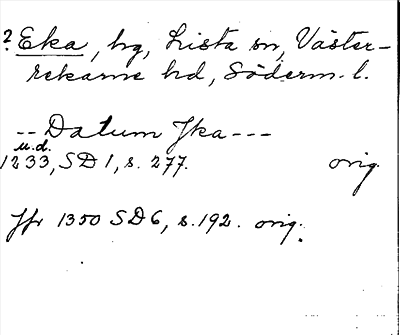 ? Eka, hg, Lista sn, Väster-
rekarne hd, Söderm. l.
-- Datum Jka ---
u.d.
1233, SD 1, s. 277. orig.
Jfr 1350 SD 6, s. 192. orig.